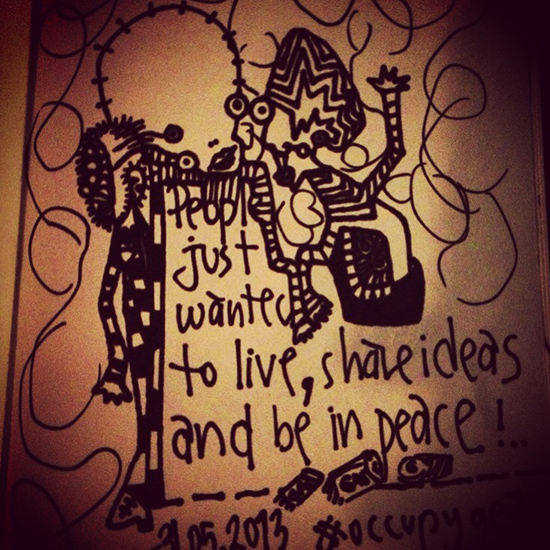 people
just
wanted
to live, share ideas
and be in peace!..
31.05.2013 #occupy